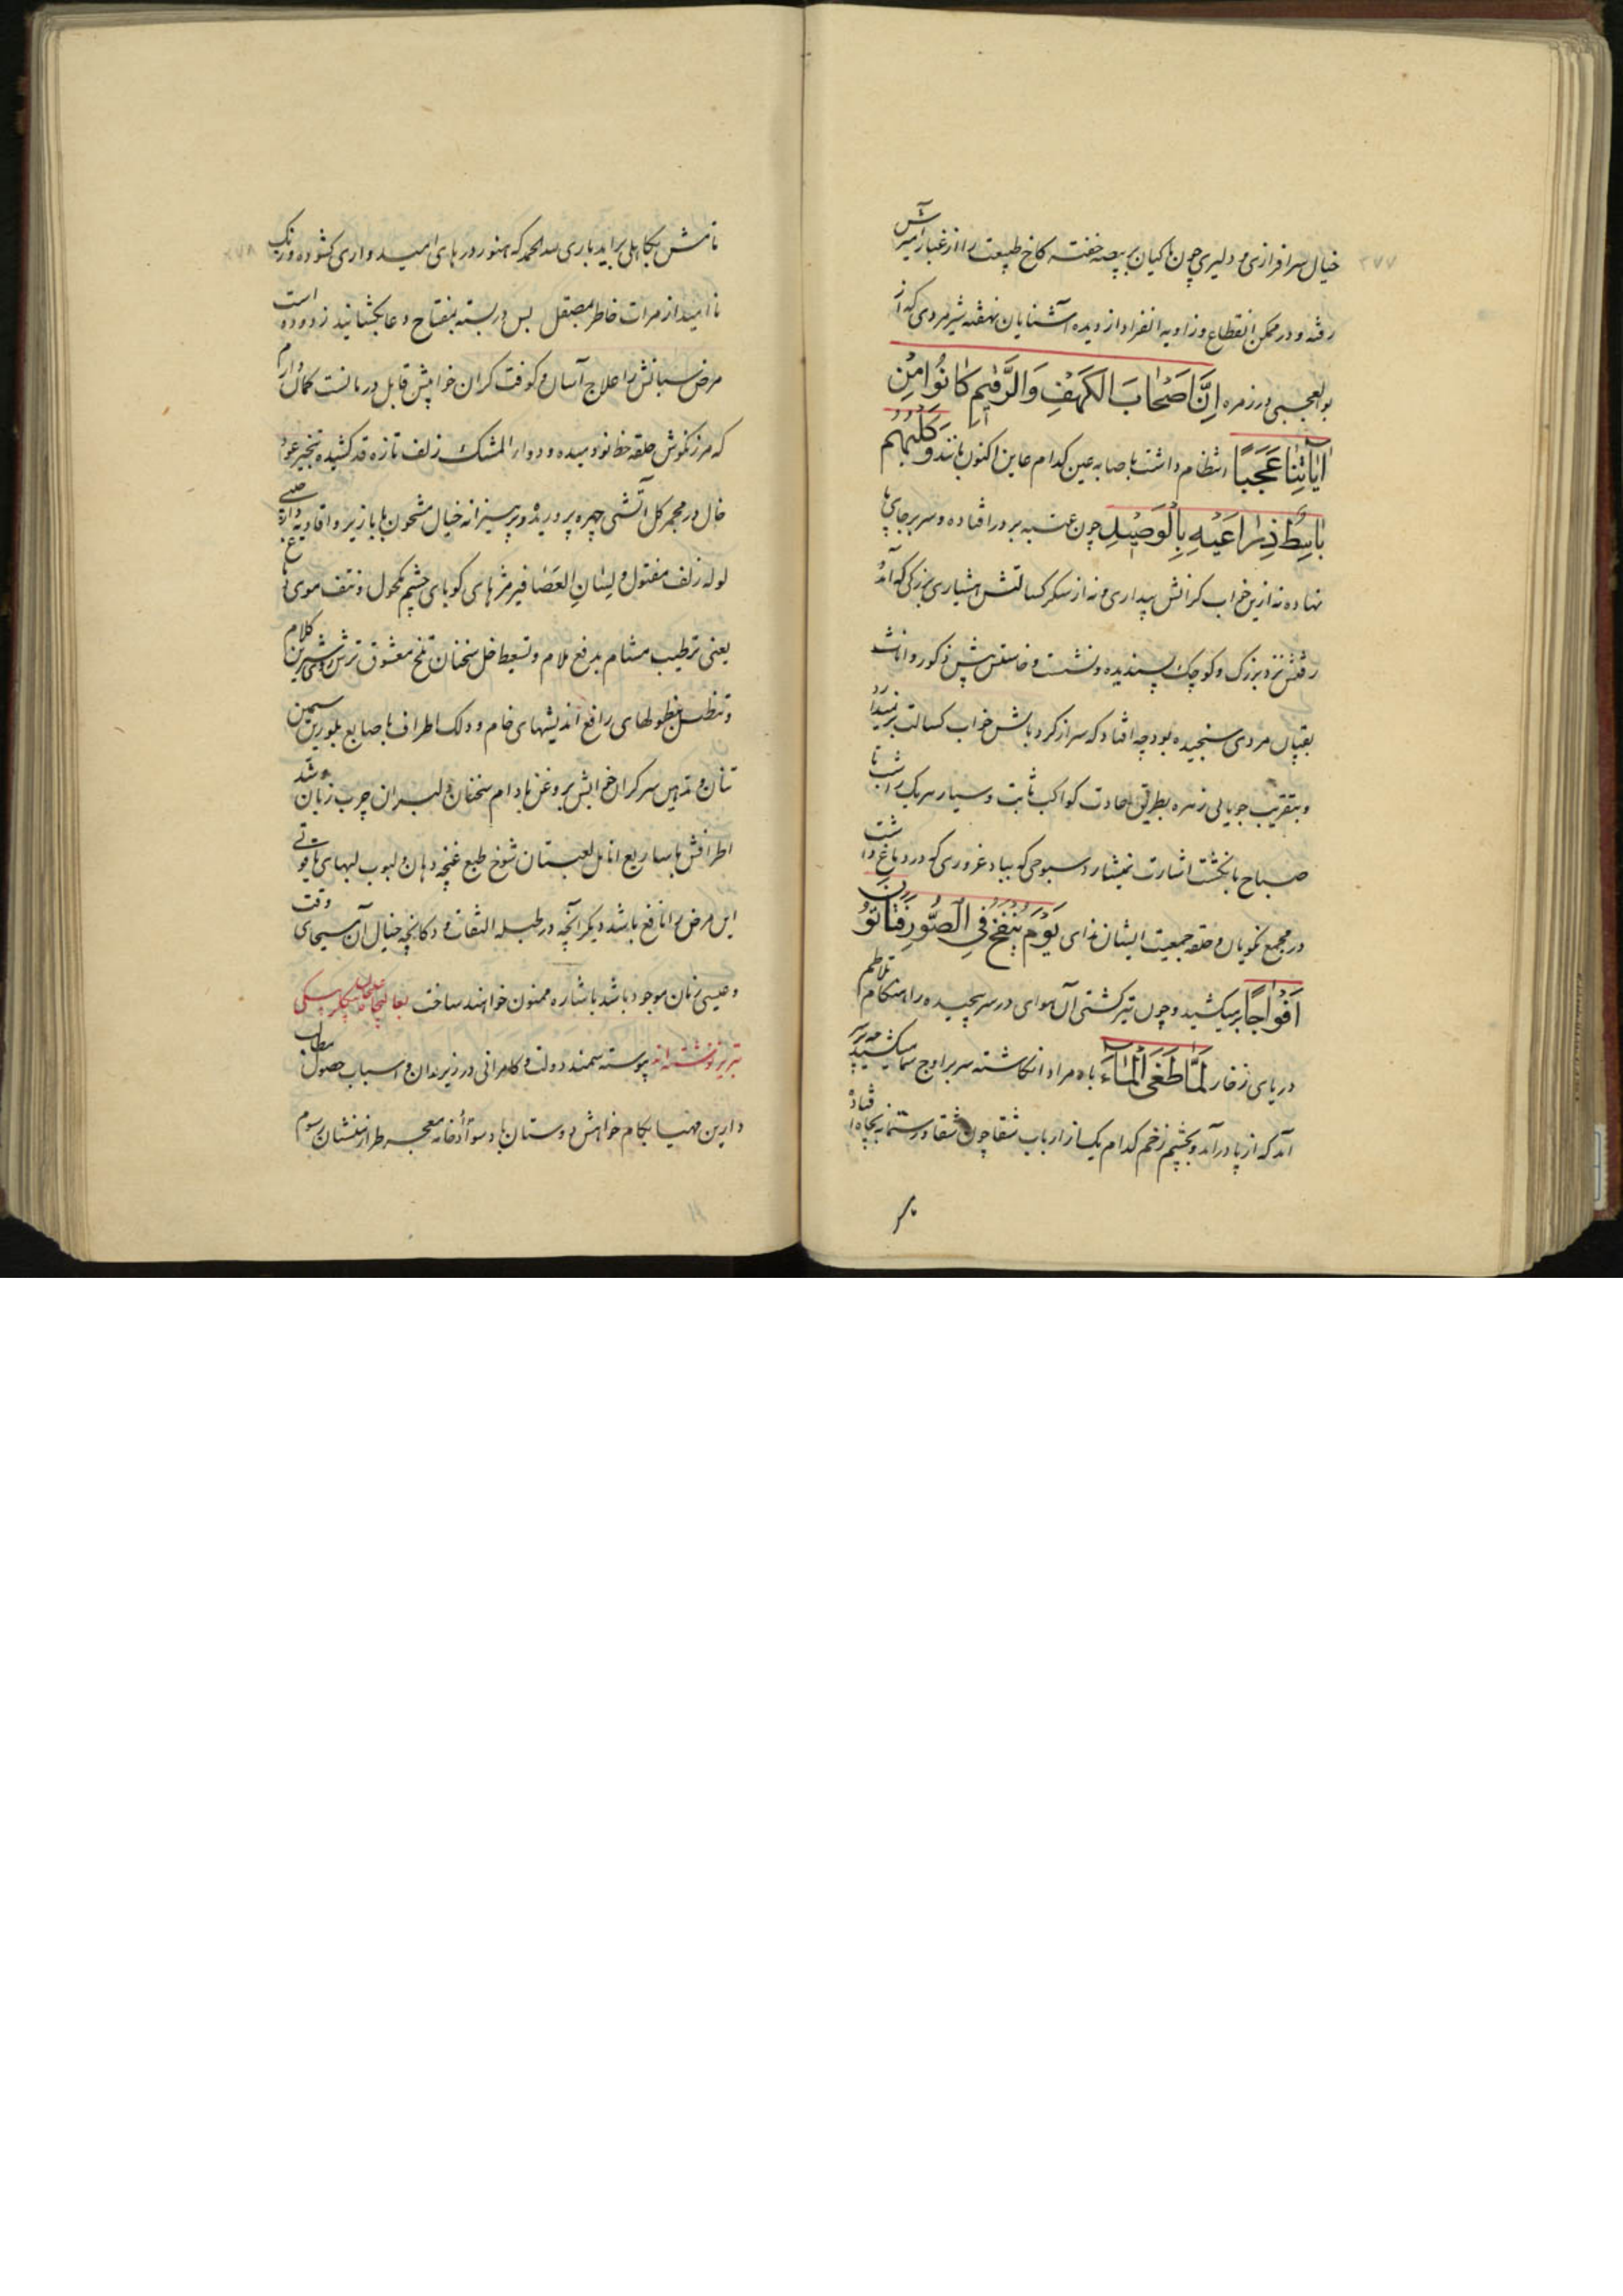 ۲۷۷
خیال سرافرازی و دلیری چون ماکیان بر بیضه خفته کاخ طبیعت را از غبار آمیزش
رفته و در ممکن انقطاع و زاویه انفراد از دیده آشنایان نهفته شیر مردی که از
بوالعجبی در زمره اِنَّ اَصْحَابَ الکَهْفِ وَالرَّقیمِ کَانُوا مِنْ
اٰیَاتِنَا عَجَبًا انتظام داشت با صابه عین کدام عاین اکنون مانند وَکَلْبُهُمْ
بَاسِطٌ ذِرَاعَیْهِ بِالْوَصِیْدِ چون عتبه بر در افتاده و سر بر جای پا
نهاده نه ازین خواب گرانش بیداری و نه از سکر کسالتش هشیاری بزرگی که آمد
رفتش نزد بزرگ و کوچک پسندیده و نشست و خاستش پیش ذکور و اناث
بقپان مردی سنجیده بود چه افتاد که سر از گرد بالش خواب کسالت بر نمیدارد
و بتقریب جویایی زهره بطریق عادت کواکب ثابت و سیار هر یک را شب تا
صباح بانگشت اشارت نمیشمارد سبوحی که بباد غروری که در دماغ داشت
در مجمع نکویان و حلقه جمعیت ایشان ندای یَوْمَ یُنْفَخُ فِی الصُّورِ فَتَأتُونَ
اَفْوَاجًا بر میکشید و چون تیر کشتی آن هوای در سر پیچیده را هنگام تلاطم
دریای زخار لَمَّا طَغَی الْمَاءُ باد مراد انگاشته سر بر اوج سما میکشید چه پیش
آمد که از پا درآمد و بچشم زخم کدام یک از ارباب شقا چون شقاد رستمانه بچاه افتاد
۲۷۸
نامش بکاهلی برآید باری لله الحمد که هنوز درهای امیدواری گشوده و زنگ
ناامید از مرات خاطر بمصقل بس در بسته بمفتاح دعا بگشانید زدوده است
مرض سباتش را علاج آسان و کوفت گران خوابیش قابل درمانست گمان دارم
که مرزنگوش حلقه خط نو دمیده و دوار المشک زلف تازه قد کشیده تبخیر عود
خال در مجمر گل آتشی چهره پرورید و بر سیزانه خیال مشحون بایازیر و افاویه
لوله زلف مفتول و لِسٰانِ العَصٰافیر مژهای گویای چشم مکحول و نتف موی
یعنی ترطیب مشام برفع ملام و تسعیط خل سخنان تلخ معشوق ترش روی شیرین کلام
و تنطیل بنطولهای رافع اندیشهای خام و دلک اطراف باصابع بلورین سیمین
تنان و تدهین سر گران خوابش بروغن بادام سخنان دلبران چرب زبان و شد
اطرافش باساریع انامل لعبتان شوخ طبع غنچه دهان و لبوب لبهای یاقوتی
این مرض را نافع باشد دیگر آنچه در طبله التفات و دکانچه خیال آن مسیحای وقت
و عیسی زمان موجود باشد باشاره ممنون خواهند ساخت
تبریز نوشته اند پیوسته سمند دولت و کامرانی در زیر ران و اسباب حصول مطالب
دارین مهیا بکام خواهش دوستان باد سوأد خامه معجز طراز منشیان رسوم